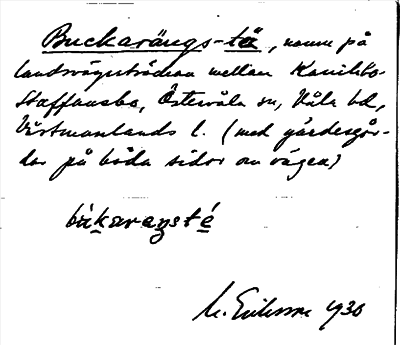 Buckarängs-tä, namn på
landsvägssträckan mellan
Staffansbo, Östervåla sn, Våla hd,
Västmanlands l. (med gärdesgår-
dar på båda sidor om vägen)
M. Eriksson 1930